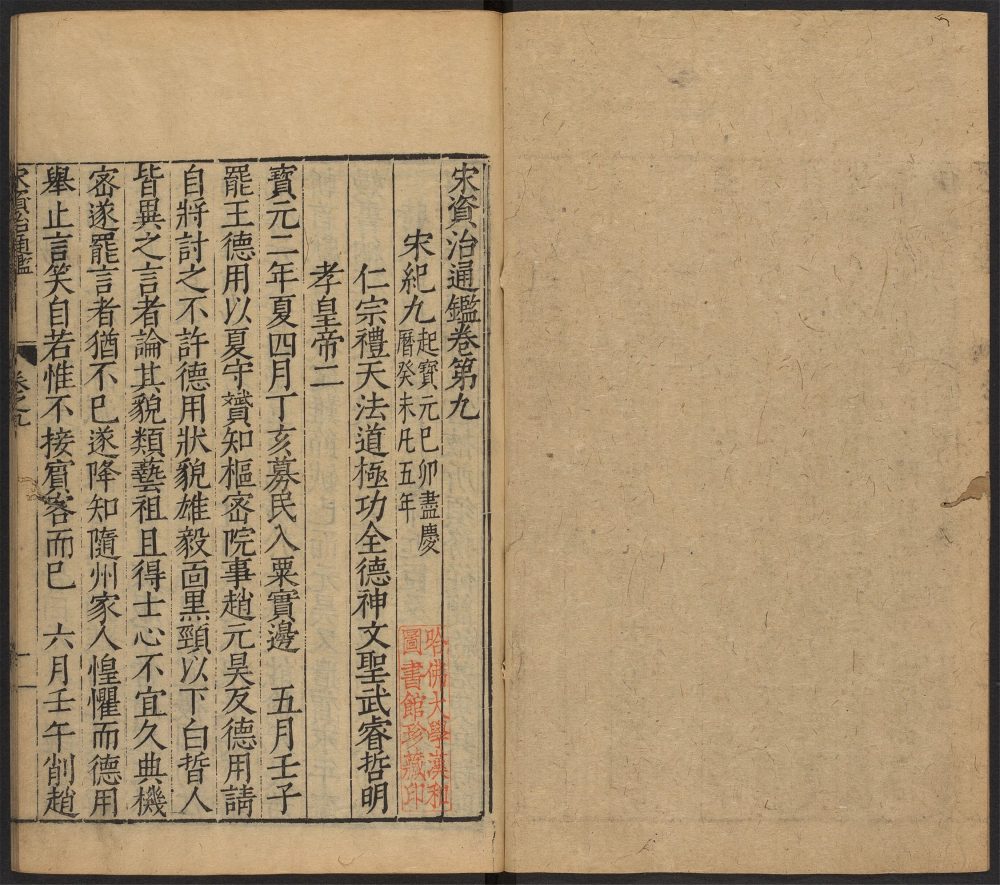 宋資治通鑑卷第九
宋紀九起寶元己卯盡慶
曆癸未凡五年
仁宗禮天法道極功全德神文聖武睿哲明
孝皇帝二
寶元二年夏四月丁亥募民入粟實邊　五月壬子
罷王德用以夏守贇知樞密院事趙元昊反德用請
自將討之不許德用狀貌雄毅面黑頸以下白晳人
皆異之言者論其貌類藝祖且得士心不宜久典機
密遂罷言者猶不已遂降知隨州家人惶懼而德用
舉止言笑自若惟不接賓客而已　六月壬午削趙
宋資治通鑑
卷之九
一
哈佛大學漢和
圖書館珍藏印